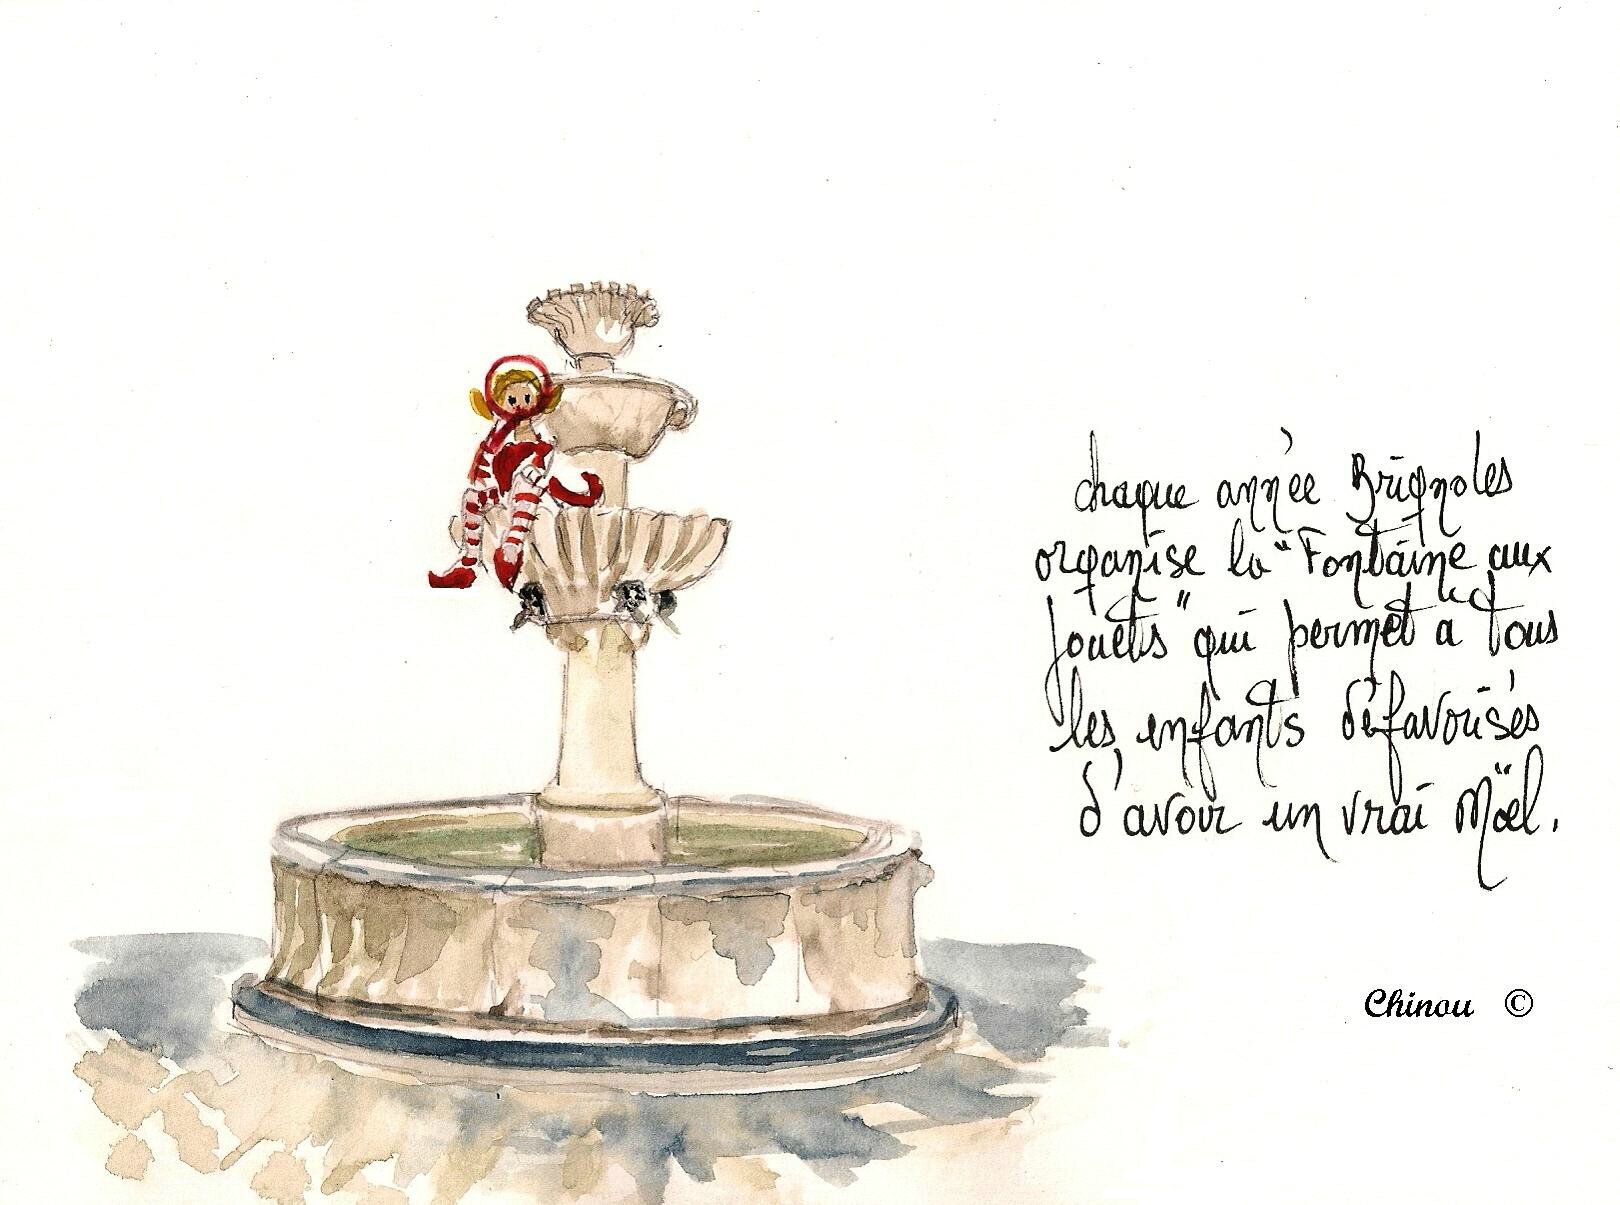 chaque année Brignoles
organise la "Fontaine aux
Jouets" qui permet à tous
les enfants défavorisés
d'avoir un vrai Noël.
Chinou ©